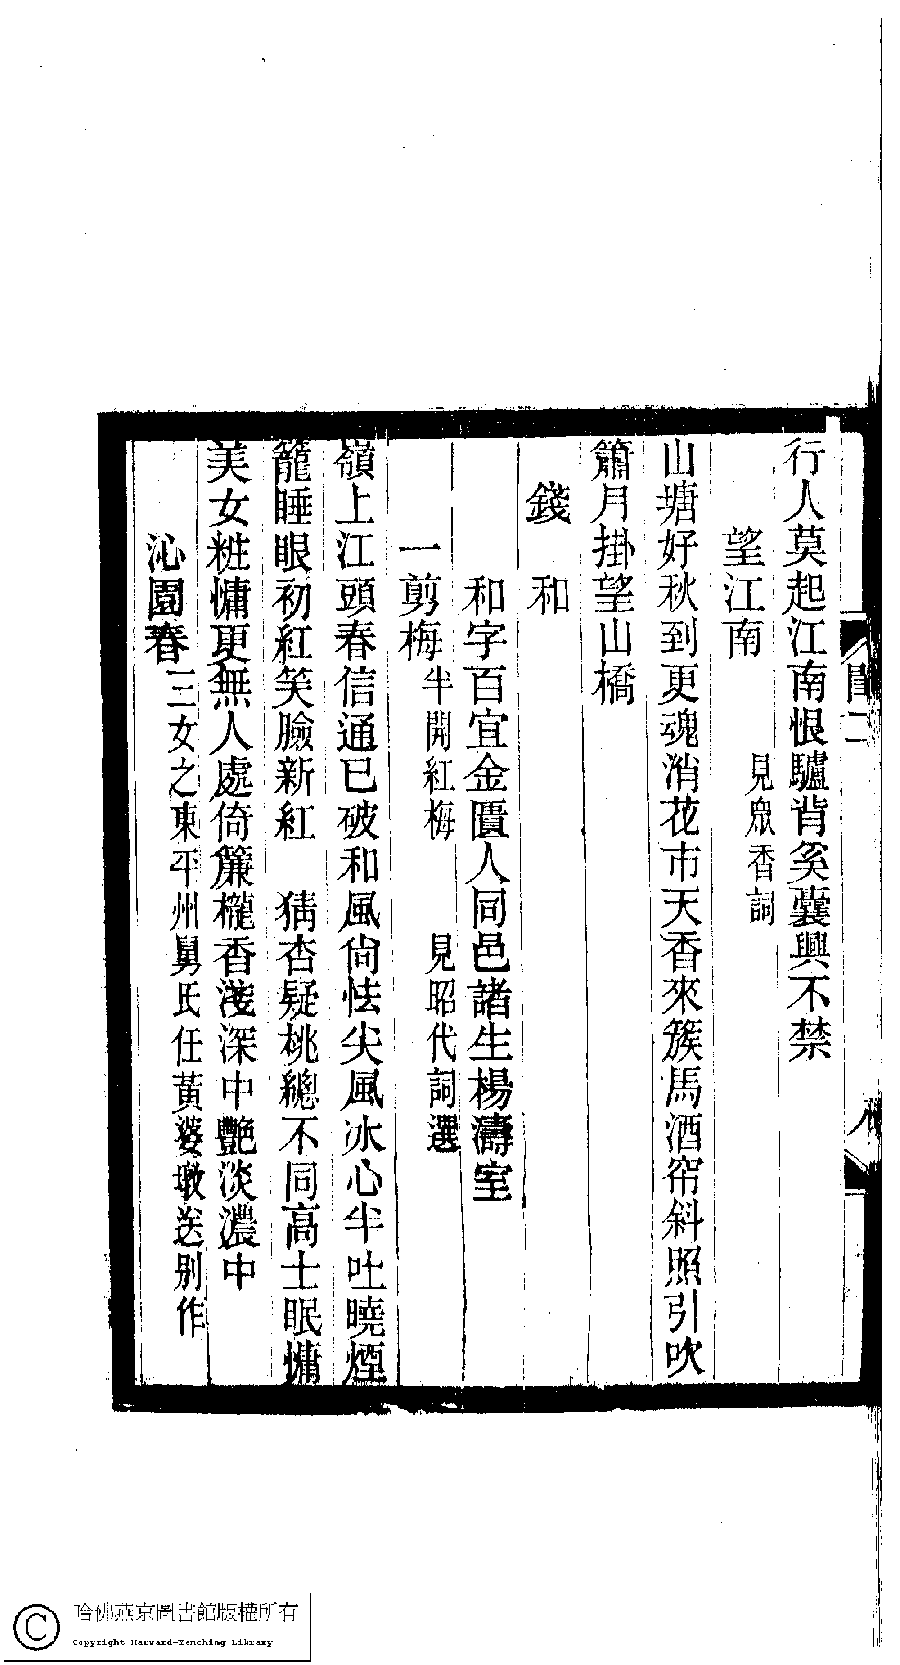 行人莫起江南恨驢背奚囊興不禁
望江南 見眾香詞
山塘好秋到更魂消花市天香來簇馬酒帘斜照引吹
簫月掛望山橋
錢和
和字百宜金匱人同邑諸生楊濤室
一剪梅 半開紅梅 見昭代詞選
嶺上江頭春信通已破和風尙怯尖風冰心半吐曉煙
籠睡眼初紅笑臉新紅 猜杏疑桃總不同高士眠慵
美女粧慵更無人處倚簾櫳香淺深中艷淡濃中
沁園春 三女之東平州舅氏任黃婆墩送別作
閨二
哈佛燕京圖書館版權所有
Copyright Harvard-Yenching Library